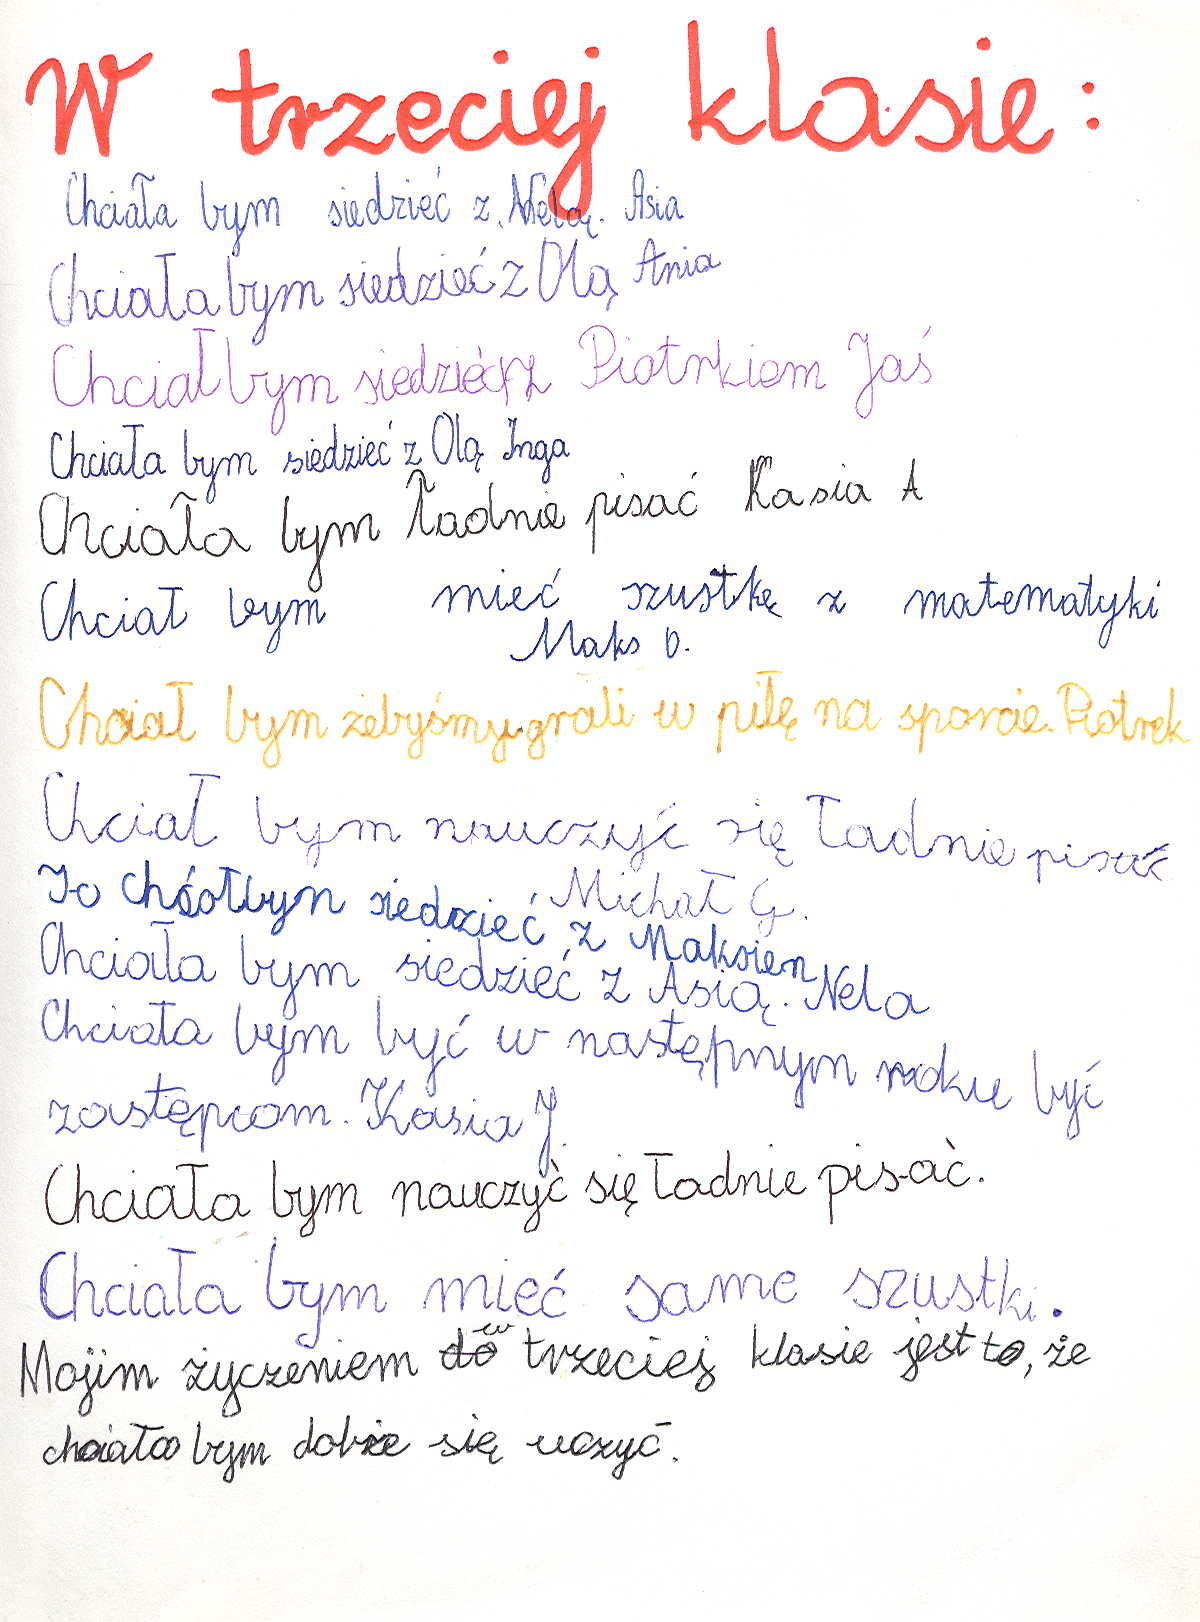 W trzeciej klasie:
Chciała bym siedzieć z Nelą. Asia
Chciała bym siedzieć z Olą Ania
Chciał bym siedzieć z Piotrkiem Jaś
Chciała bym siedzieć z Olą Inga
Chciała bym ładnie pisać Kasia A
Chciał bym mieć szustkę z matematyki
Maks D.
Chciał bym żebyśmy grali w piłę na sporcie. Piotrek
Chciał bym nauczyć się ładnie pisać
Michał G.
Jo siedzieć z Maksien
Chciała bym siedzieć z Asią. Nela
Chciała bym być w następnym rokue być
zastępcom. Kasia J.
Chciała bym nauczyć się ładnie pisać.
Chciała bym mieć same szustki.
Mojim życzeniem w trzeciej klasie jest to, że
chciała bym dobże się uczyć.